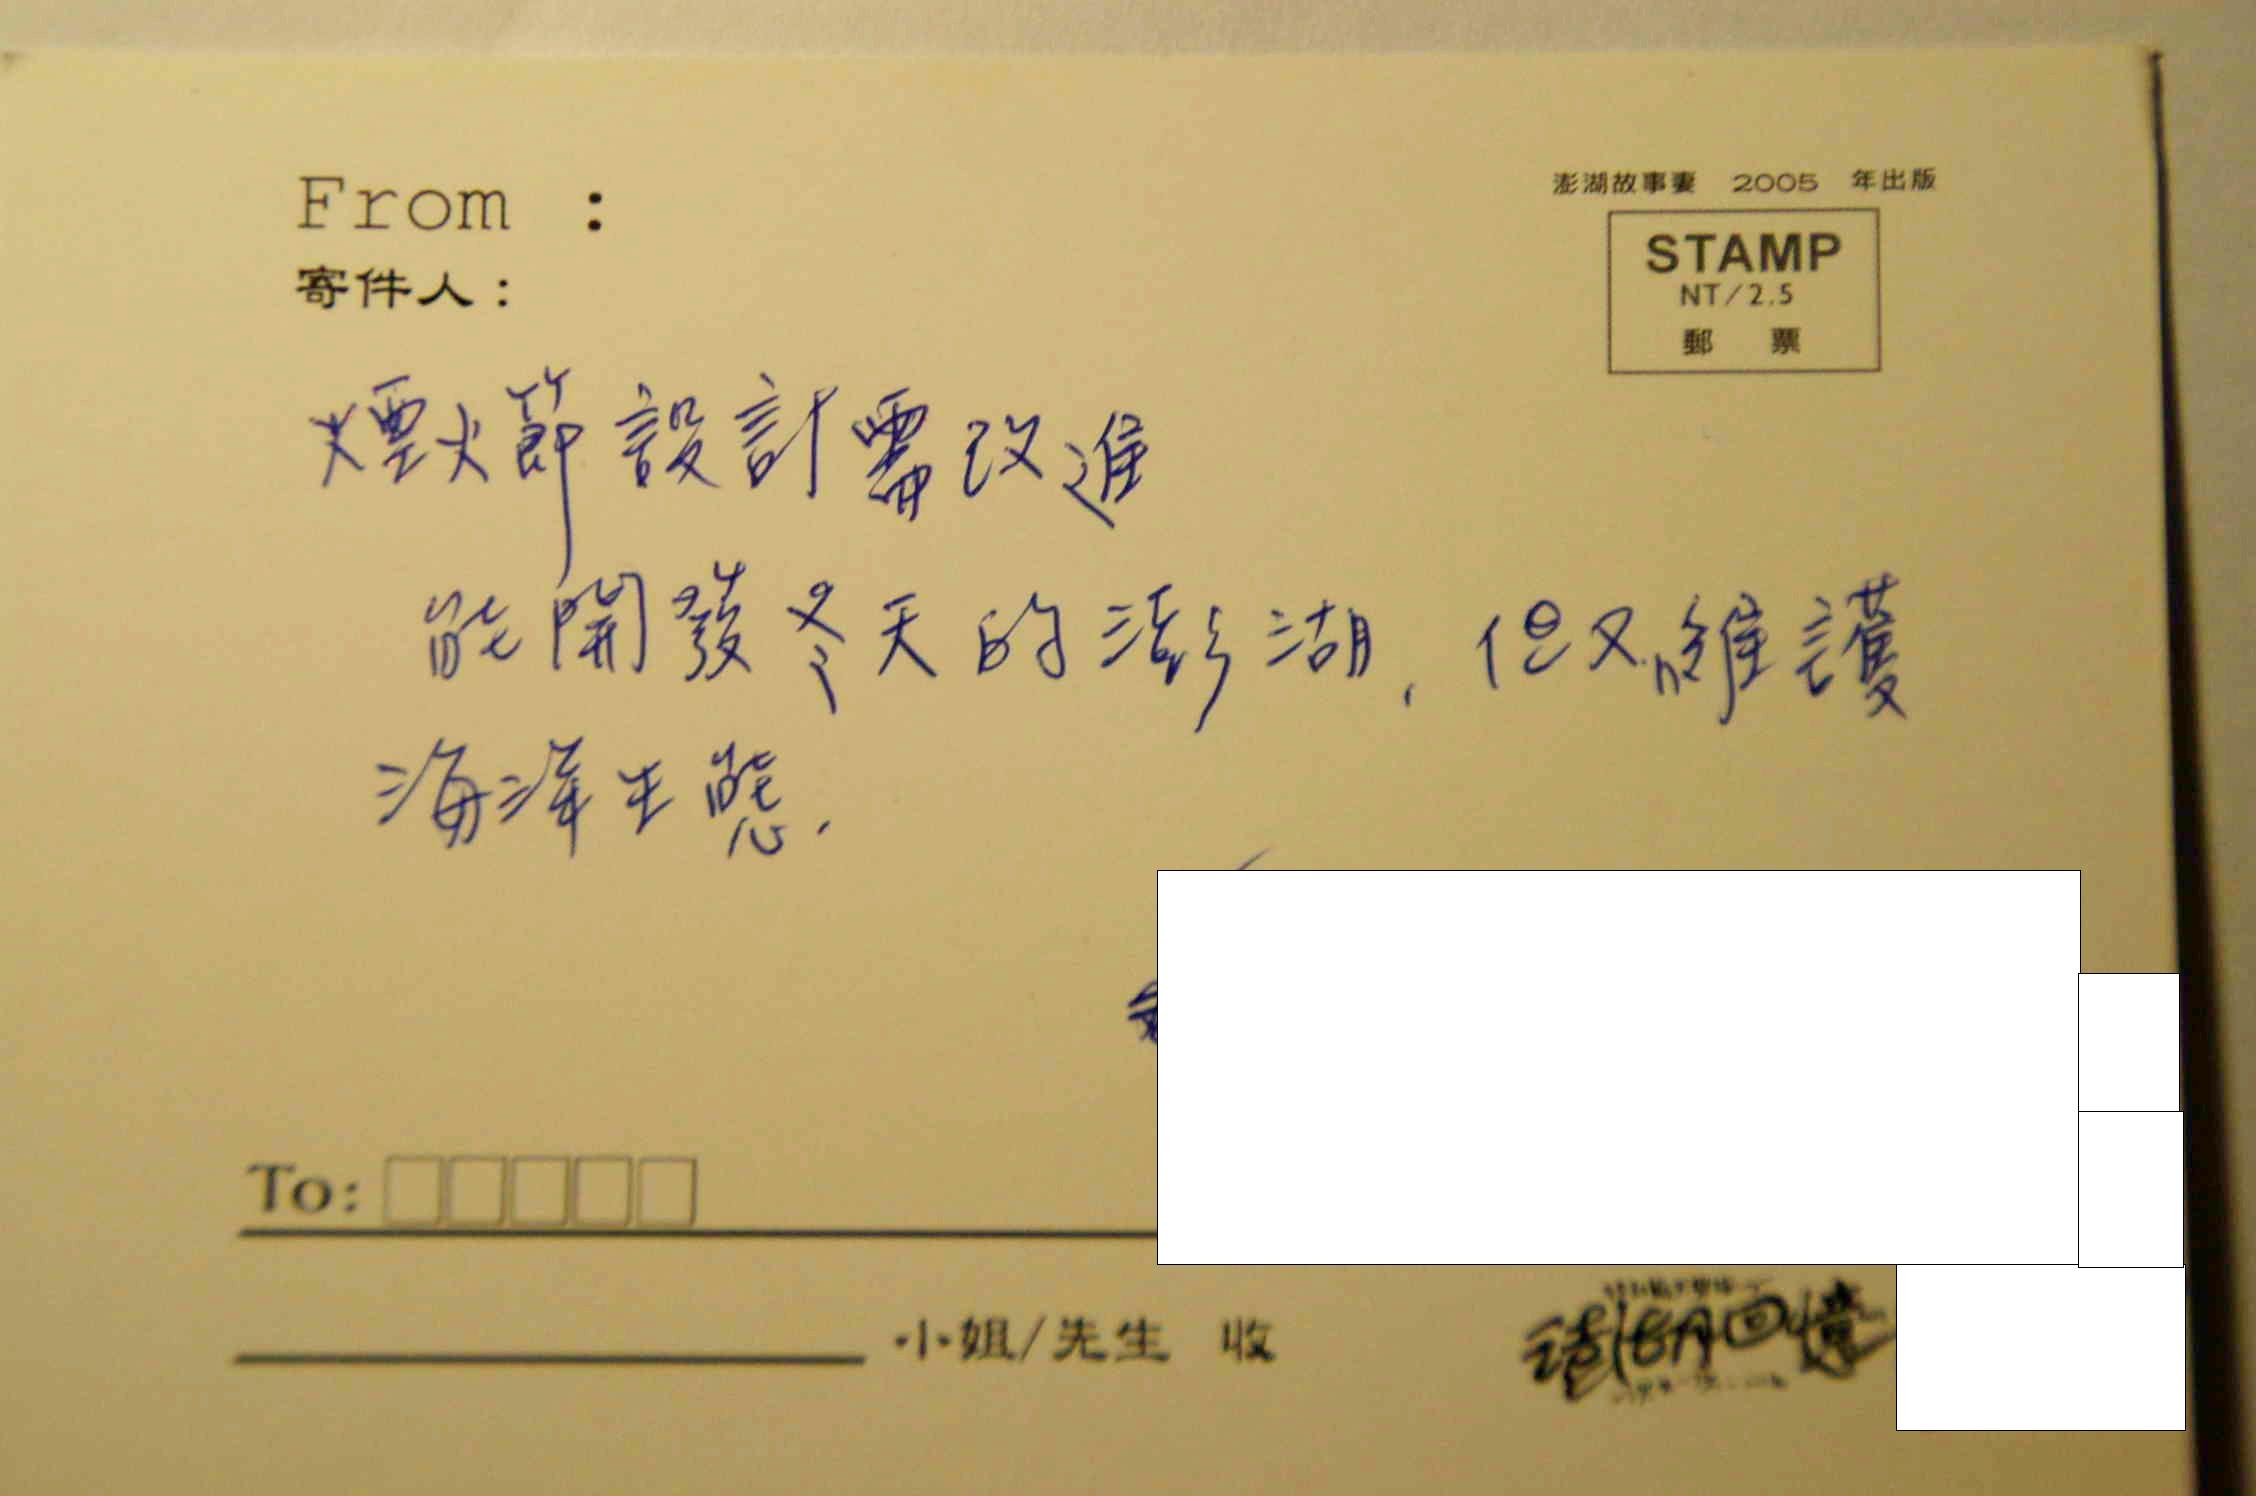 From :
寄件人：
澎湖故事妻 2005 年出版
STAMP
NT/2.5
郵 票
煙火節設計需改進
能開發冬天的澎湖，但又維護
海洋生態.
To:
小姐/先生 收
回憶